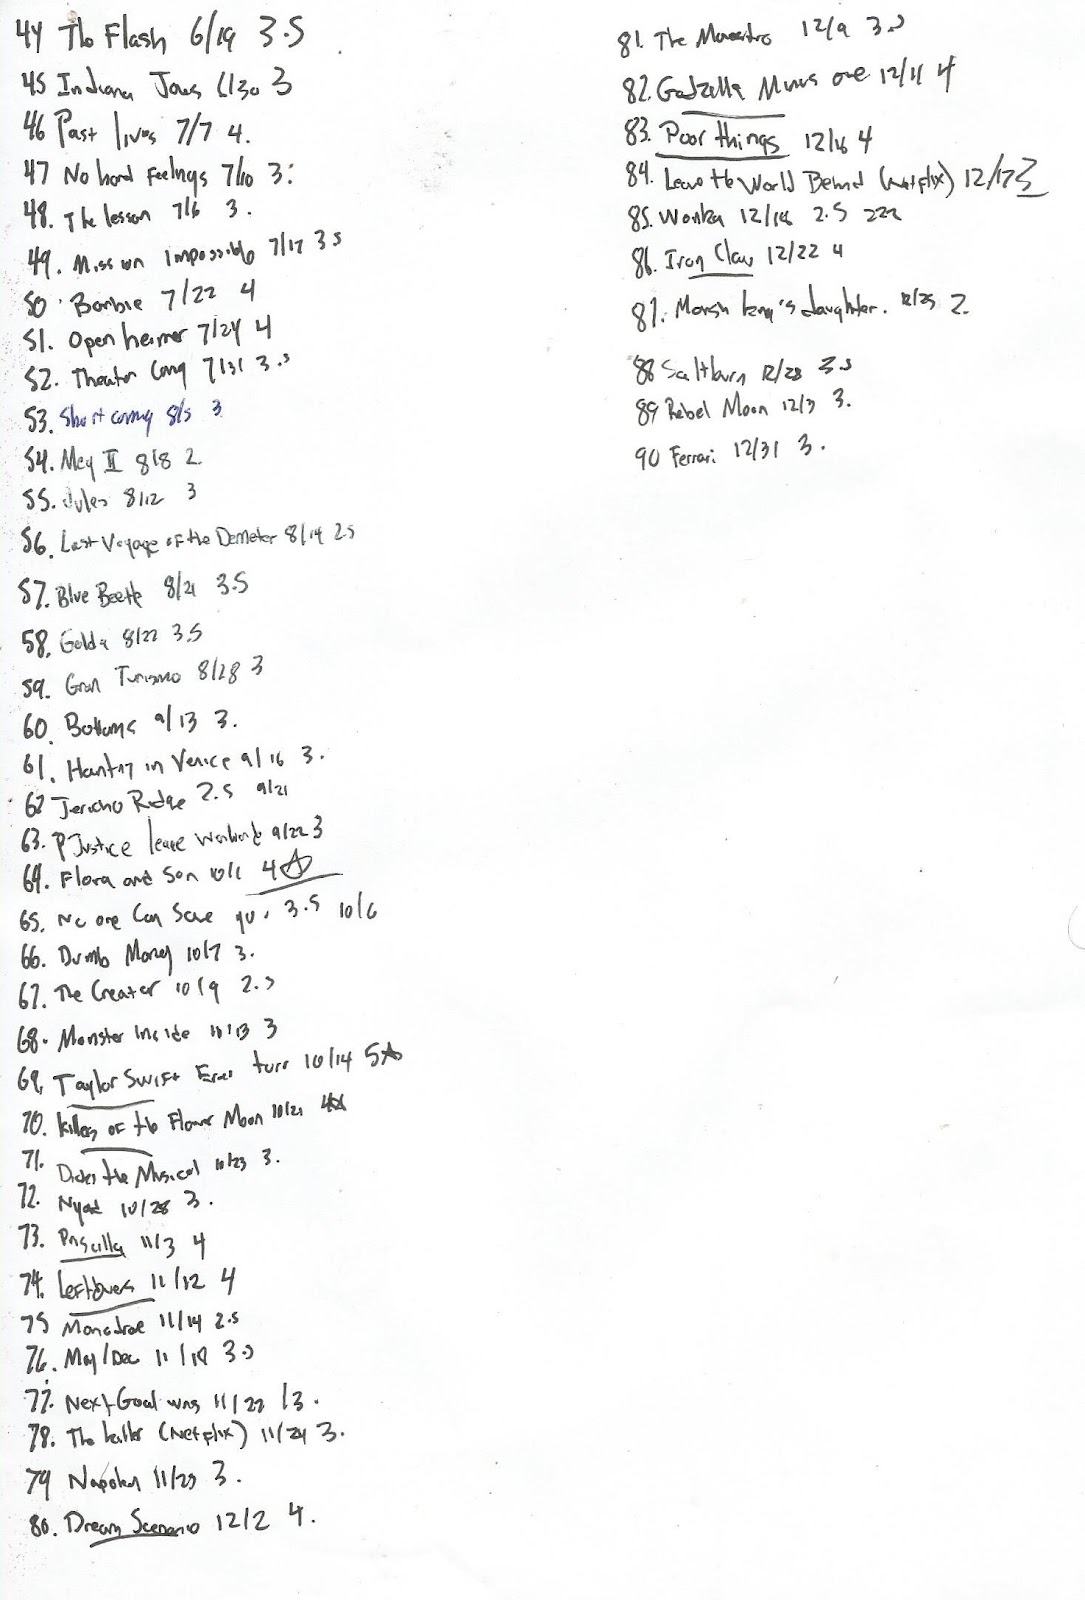 44 The Flash 6/19 3.5
45 Indiana Jones 6/30 3
46 Past lives 7/7 4.
47 No hard Feelings 7/10 3.
48. The lesson 7/6 3.
49. Mission Impossible 7/17 3.5
50. Barbie 7/22 4
51. Openheimer 7/24 4
52. Theater Camp 7/31 3.5
53. Short coming 8/5 3
54. Meg II 8/8 2.
55. Jules 8/12 3
56. Last Voyage of the Demeter 8/14 2.5
57. Blue Beetle 8/21 3.5
58. Golda 8/22 3.5
59. Gran Turismo 8/28 3
60. Bottoms 9/13 3.
61. Hanting in Venice 9/16 3.
62 Jericho Ridge 2.5 9/21
63. Justice league 9/22 3
64. Flora and Son 10/1 4
65. No one Can Save you. 3.5 10/6
66. Dumb Money 10/7 3.
67. The Creator 10/9 2.5
68. Monster Inside 10/13 3
69. Taylor Swift Eras turr 10/14 5
70. Killers of the Flower Moon 10/21 4
71. Dicks the Musical 10/23 3.
72. Nyad 10/28 3.
73. Priscilla 11/3 4
74. Leftovers 11/12 4
75 11/14 2.5
76. May/Dec 11/18 3.5
77. Next Goal wns 11/22 3.
78. The killer (Netflix) 11/24 3.
79 Napoleon 11/25 3.
80. Dream Scenario 12/2 4.
81. The Maestro 12/9 3.5
82. Godzilla Minus one 12/11 4
83. Poor things 12/16 4
84. Leave the World Behind (Netflix) 12/17 3
85. Wonka 12/18 2.5 222
86. Iron Claw 12/22 4
87. Marsh king's daughter. 12/25 2.
88 Saltburn 12/28 3.5
89 Rebel Moon 12/3 3.
90 Ferrari 12/31 3.